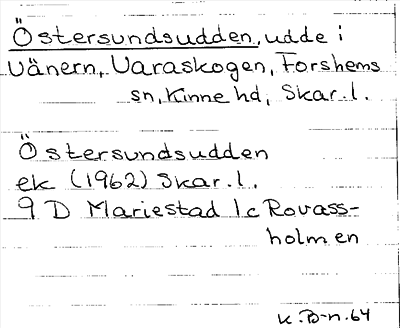 Östersundsudden, udde i
Vänern, Varaskogen, Forshems
sn, Kinne hd, Skar.l.
Östersundsudden
ek (1962) Skar.l.
9 D Mariestad 1c Rovass-
holmen
K.B-n.64